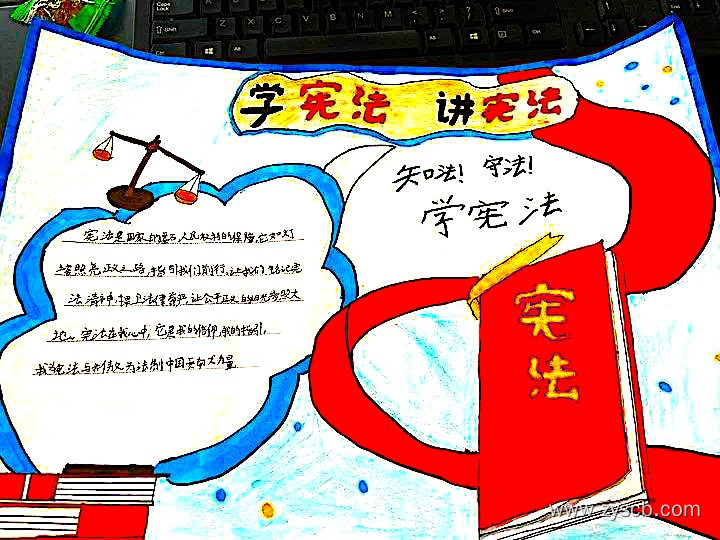 学宪法 讲宪法
知法！守法！
学宪法
宪法是国家的基石人民权利的保障,它如灯
塔照亮政之路,指引我们前行,让我们
法精神,捍卫法律尊严,让公平正义的阳光普照大
地。宪法在我心中,它是我的信仰,我的指引,
我 宪法 为法制中国 大力量
宪法
www.zyscb.com